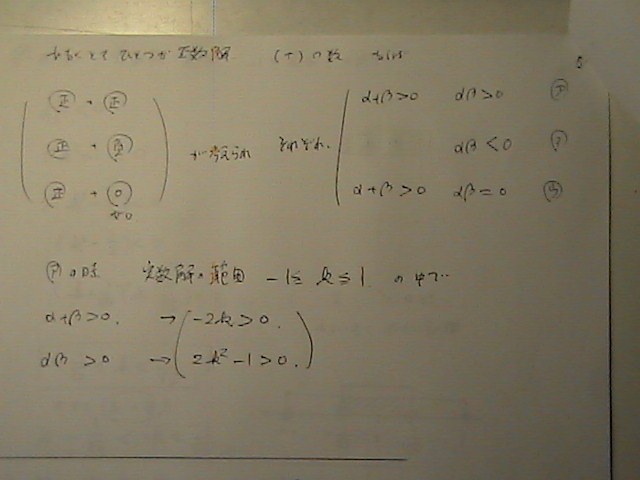 少なくとも ひとつが 正数解 (+)の数
正 + 正
正 + 負
正 + 0
が考えられ それぞれ、
α+β>0 αβ>0 ㋐
αβ<0 ㋑
α+β>0 αβ=0 ㋒
㋐の時 実数解の範囲 -1≦k≦1 の中で…
α+β>0. → -2k>0.
αβ>0 → 2k²-1>0.